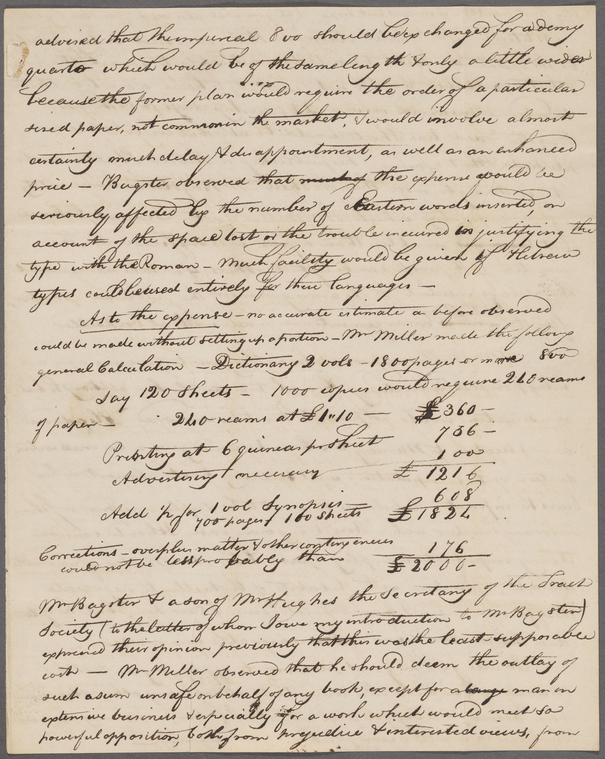 advised that the imperial 8vo should be exchanged for a demy
quarto which would be of the same length & only a little wider
because the former plan would require the order of a particular
sized paper, not common in the market, & would involve almost
certainly much delay & disappointment, as well as an enhanced
price — Bagster observed that the expense would be
seriously affected by the number of Eastern words inserted on
account of the space lost or the trouble incurred in justifying the
type with the Roman — Much facility would be given if Hebrew
types could be used entirely for these languages —
As to the expense — no accurate estimate as before observed
could be made without setting up a portion — Mr Miller made the follow:g
general Calculation — Dictionary 2 vols — 1800 pages or more 8vo
Say 120 Sheets — 1000 copies would require 240 reams
of paper — 240 reams at £1"10 — £360 —
Printing at 6 guineas pr Sheet 756 —
Advertising necessary 100
£ 1216
608
Add ½ for 1 vol Synopsis — £1824
700 pages 100 Sheets
Corrections — overplus matter & other contingencies
could not be less probably than 176
£ 2000 —
Mr Bagster & a son of Mr Hughes the Secretary of the Tract
Society (to the latter of whom I owe my introduction to Mr Bagster)
expressed their opinion previously that this was the least supposable
cost — Mr Miller observed that he should deem the outlay of
such a sum unsafe on behalf of any book, except for a man in
extensive business & especially for a work which would meet so
powerful opposition, both from prejudice & interested views, from